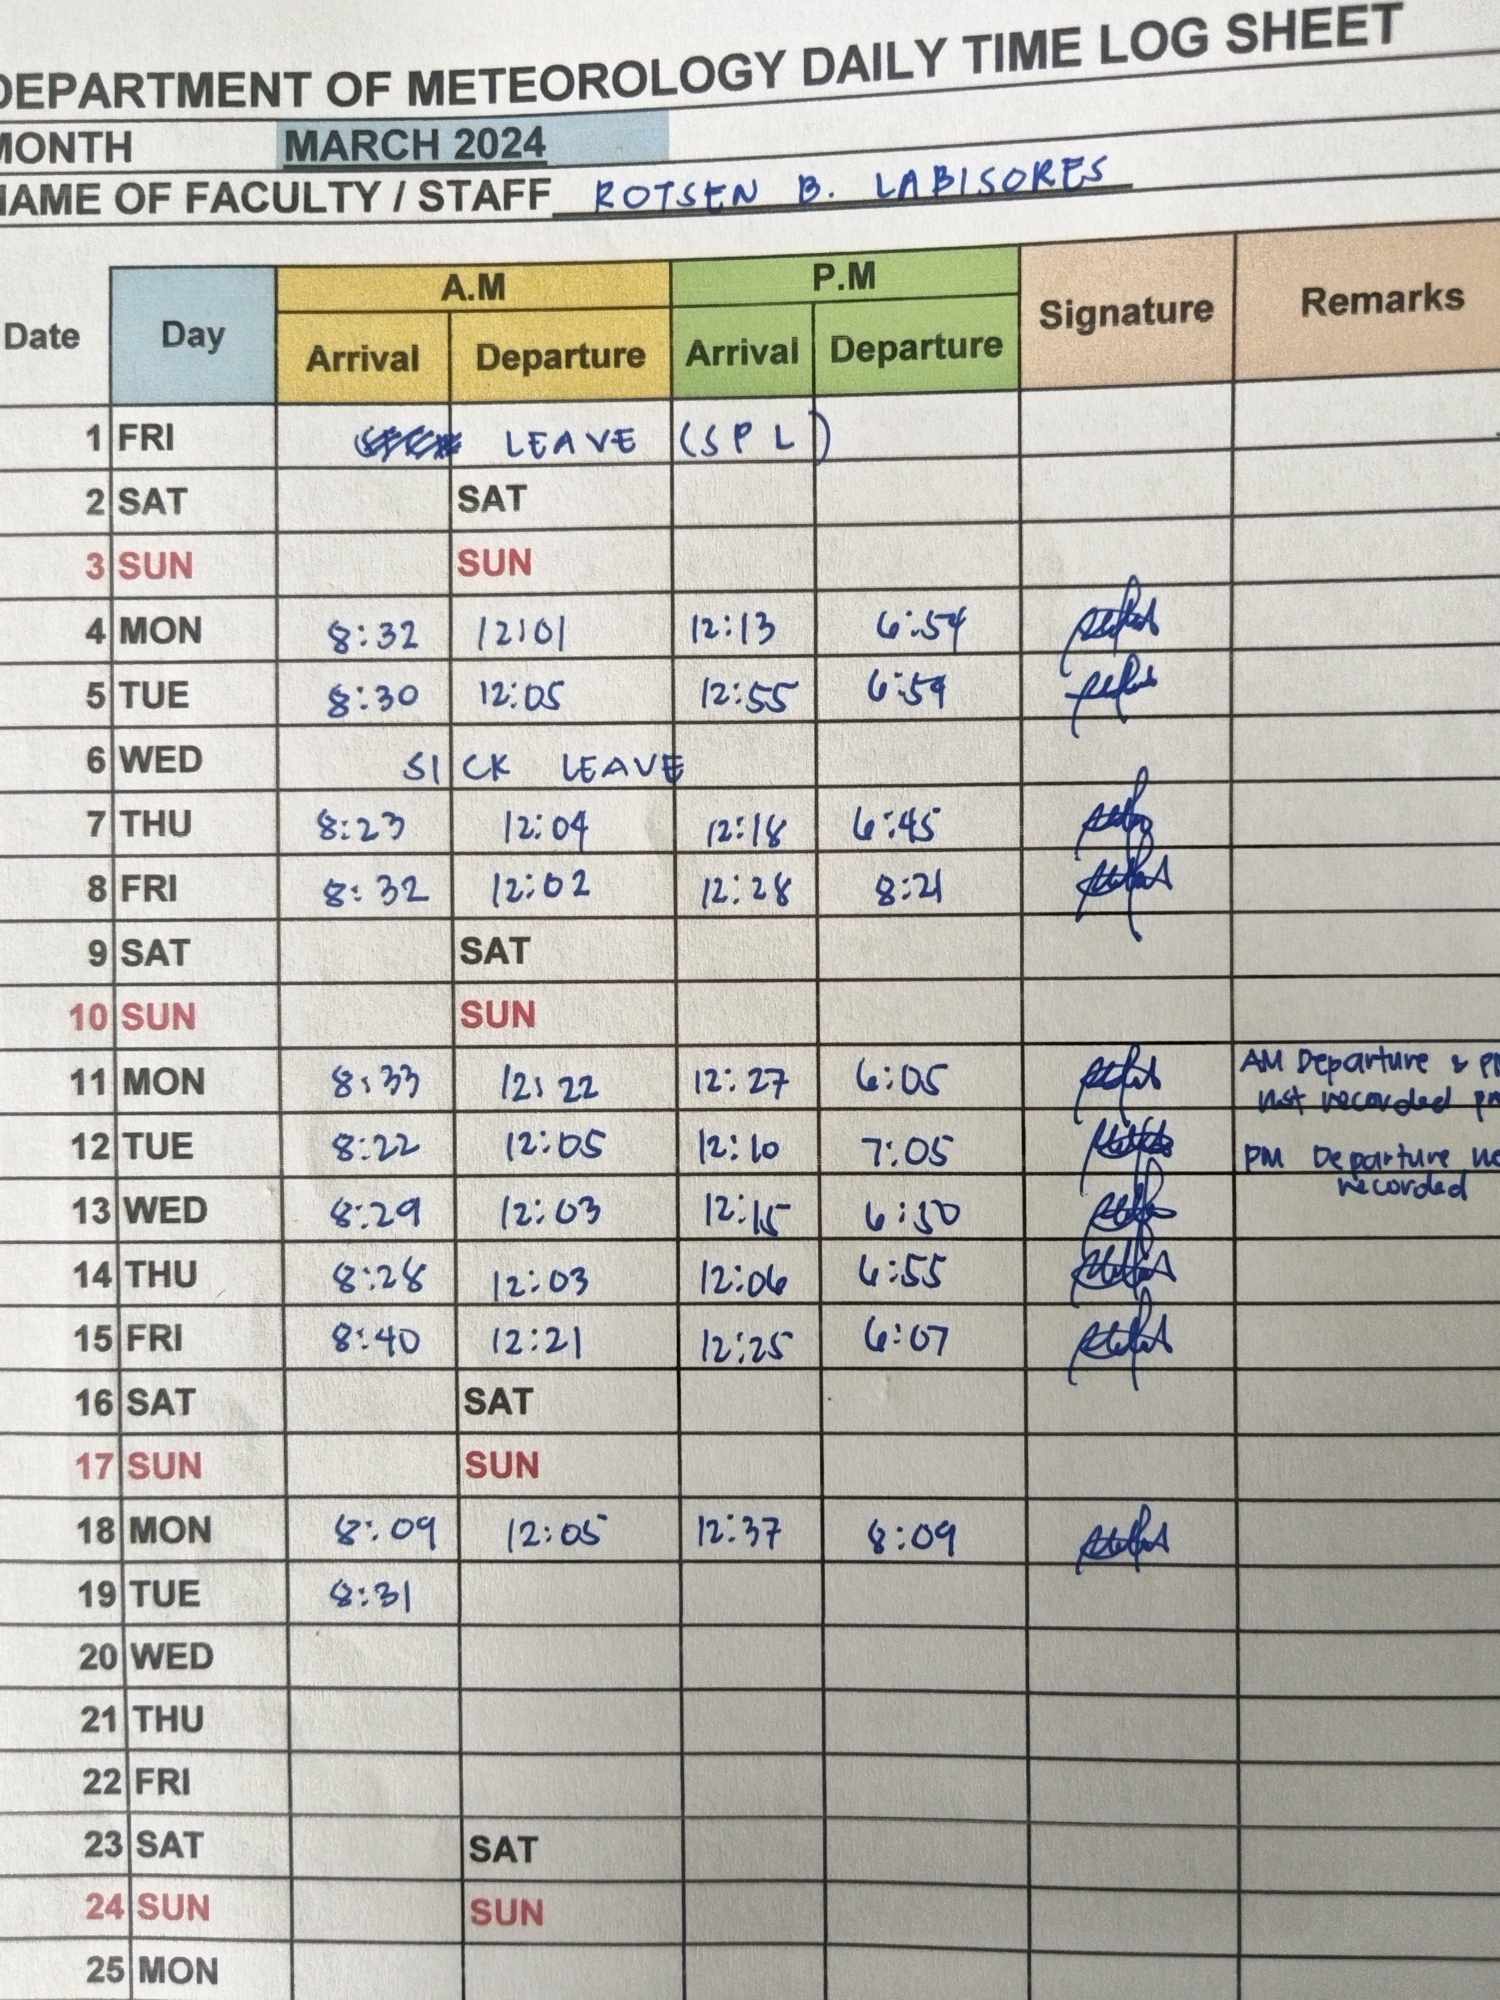 DEPARTMENT OF METEOROLOGY DAILY TIME LOG SHEET
MONTH MARCH 2024
NAME OF FACULTY / STAFF ROTSEN B. LABISORES
A.M P.M
Date Day Arrival Departure Arrival Departure Signature Remarks
1 FRI LEAVE (SPL)
2 SAT SAT
3 SUN SUN
4 MON 8:32 12:01 12:13 6:54
5 TUE 8:30 12:05 12:55 6:59
6 WED SICK LEAVE
7 THU 8:23 12:04 12:18 6:45
8 FRI 8:32 12:02 12:28 8:21
9 SAT SAT
10 SUN SUN
11 MON 8:33 12:22 12:27 6:05 AM Departure &
not recorded
12 TUE 8:22 12:05 12:10 7:05 PM Departure
recorded
13 WED 8:29 12:03 12:15 6:30
14 THU 8:28 12:03 12:06 6:55
15 FRI 8:40 12:21 12:25 6:07
16 SAT SAT
17 SUN SUN
18 MON 8:09 12:05 12:37 8:09
19 TUE 8:31
20 WED
21 THU
22 FRI
23 SAT SAT
24 SUN SUN
25 MON